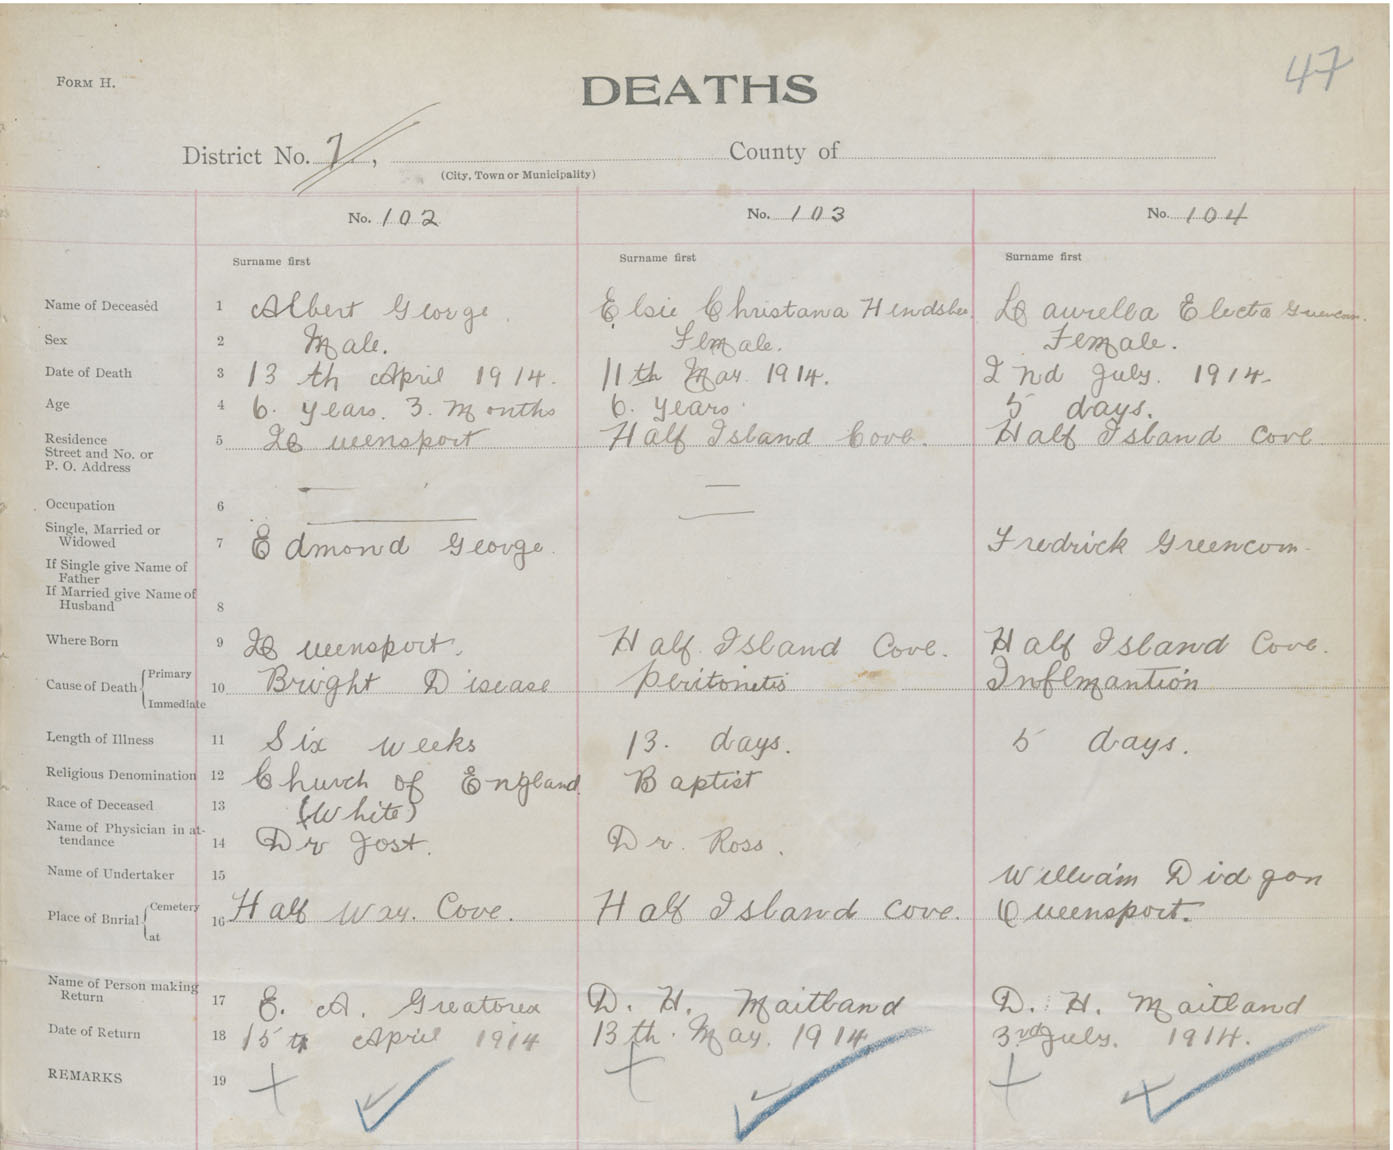 47
Form H.
DEATHS
District No. 7, County of
(City, Town or Municipality)
No. 102 No. 103 No. 104
Surname first Surname first Surname first
Name of Deceased 1 Albert George. Elsie Christana Hendsbee Laurella Electa Greencorn.
Sex 2 Male. Female. Female.
Date of Death 3 13th April 1914. 11th May 1914. 2nd July. 1914.
Age 4 6. years. 3. Months 6. years 5 days.
Residence Street and No. or P. O. Address 5 Queensport Half Island Cove. Half Island Cove
Occupation 6 — —
Single, Married or Widowed 7 Edmond George. Fredrick Greencorn.
If Single give Name of Father
If Married give Name of Husband 8
Where Born 9 Queensport. Half Island Cove. Half Island Cove.
Cause of Death { Primary Immediate 10 Bright Disease Peritonetis Inflmantion
Length of Illness 11 Six weeks 13. days. 5 days.
Religious Denomination 12 Church of England Baptist
Race of Deceased 13 (White)
Name of Physician in attendance 14 Dr Jost. Dr. Ross.
Name of Undertaker 15 William Didgon
Place of Burial { Cemetery at 16 Half Way. Cove. Half Island Cove. Queensport.
Name of Person making Return 17 E. A. Greatorex D. H. Maitland D. H. Maitland
Date of Return 18 15th April 1914 13th. May. 1914 3rd July. 1914.
REMARKS 19